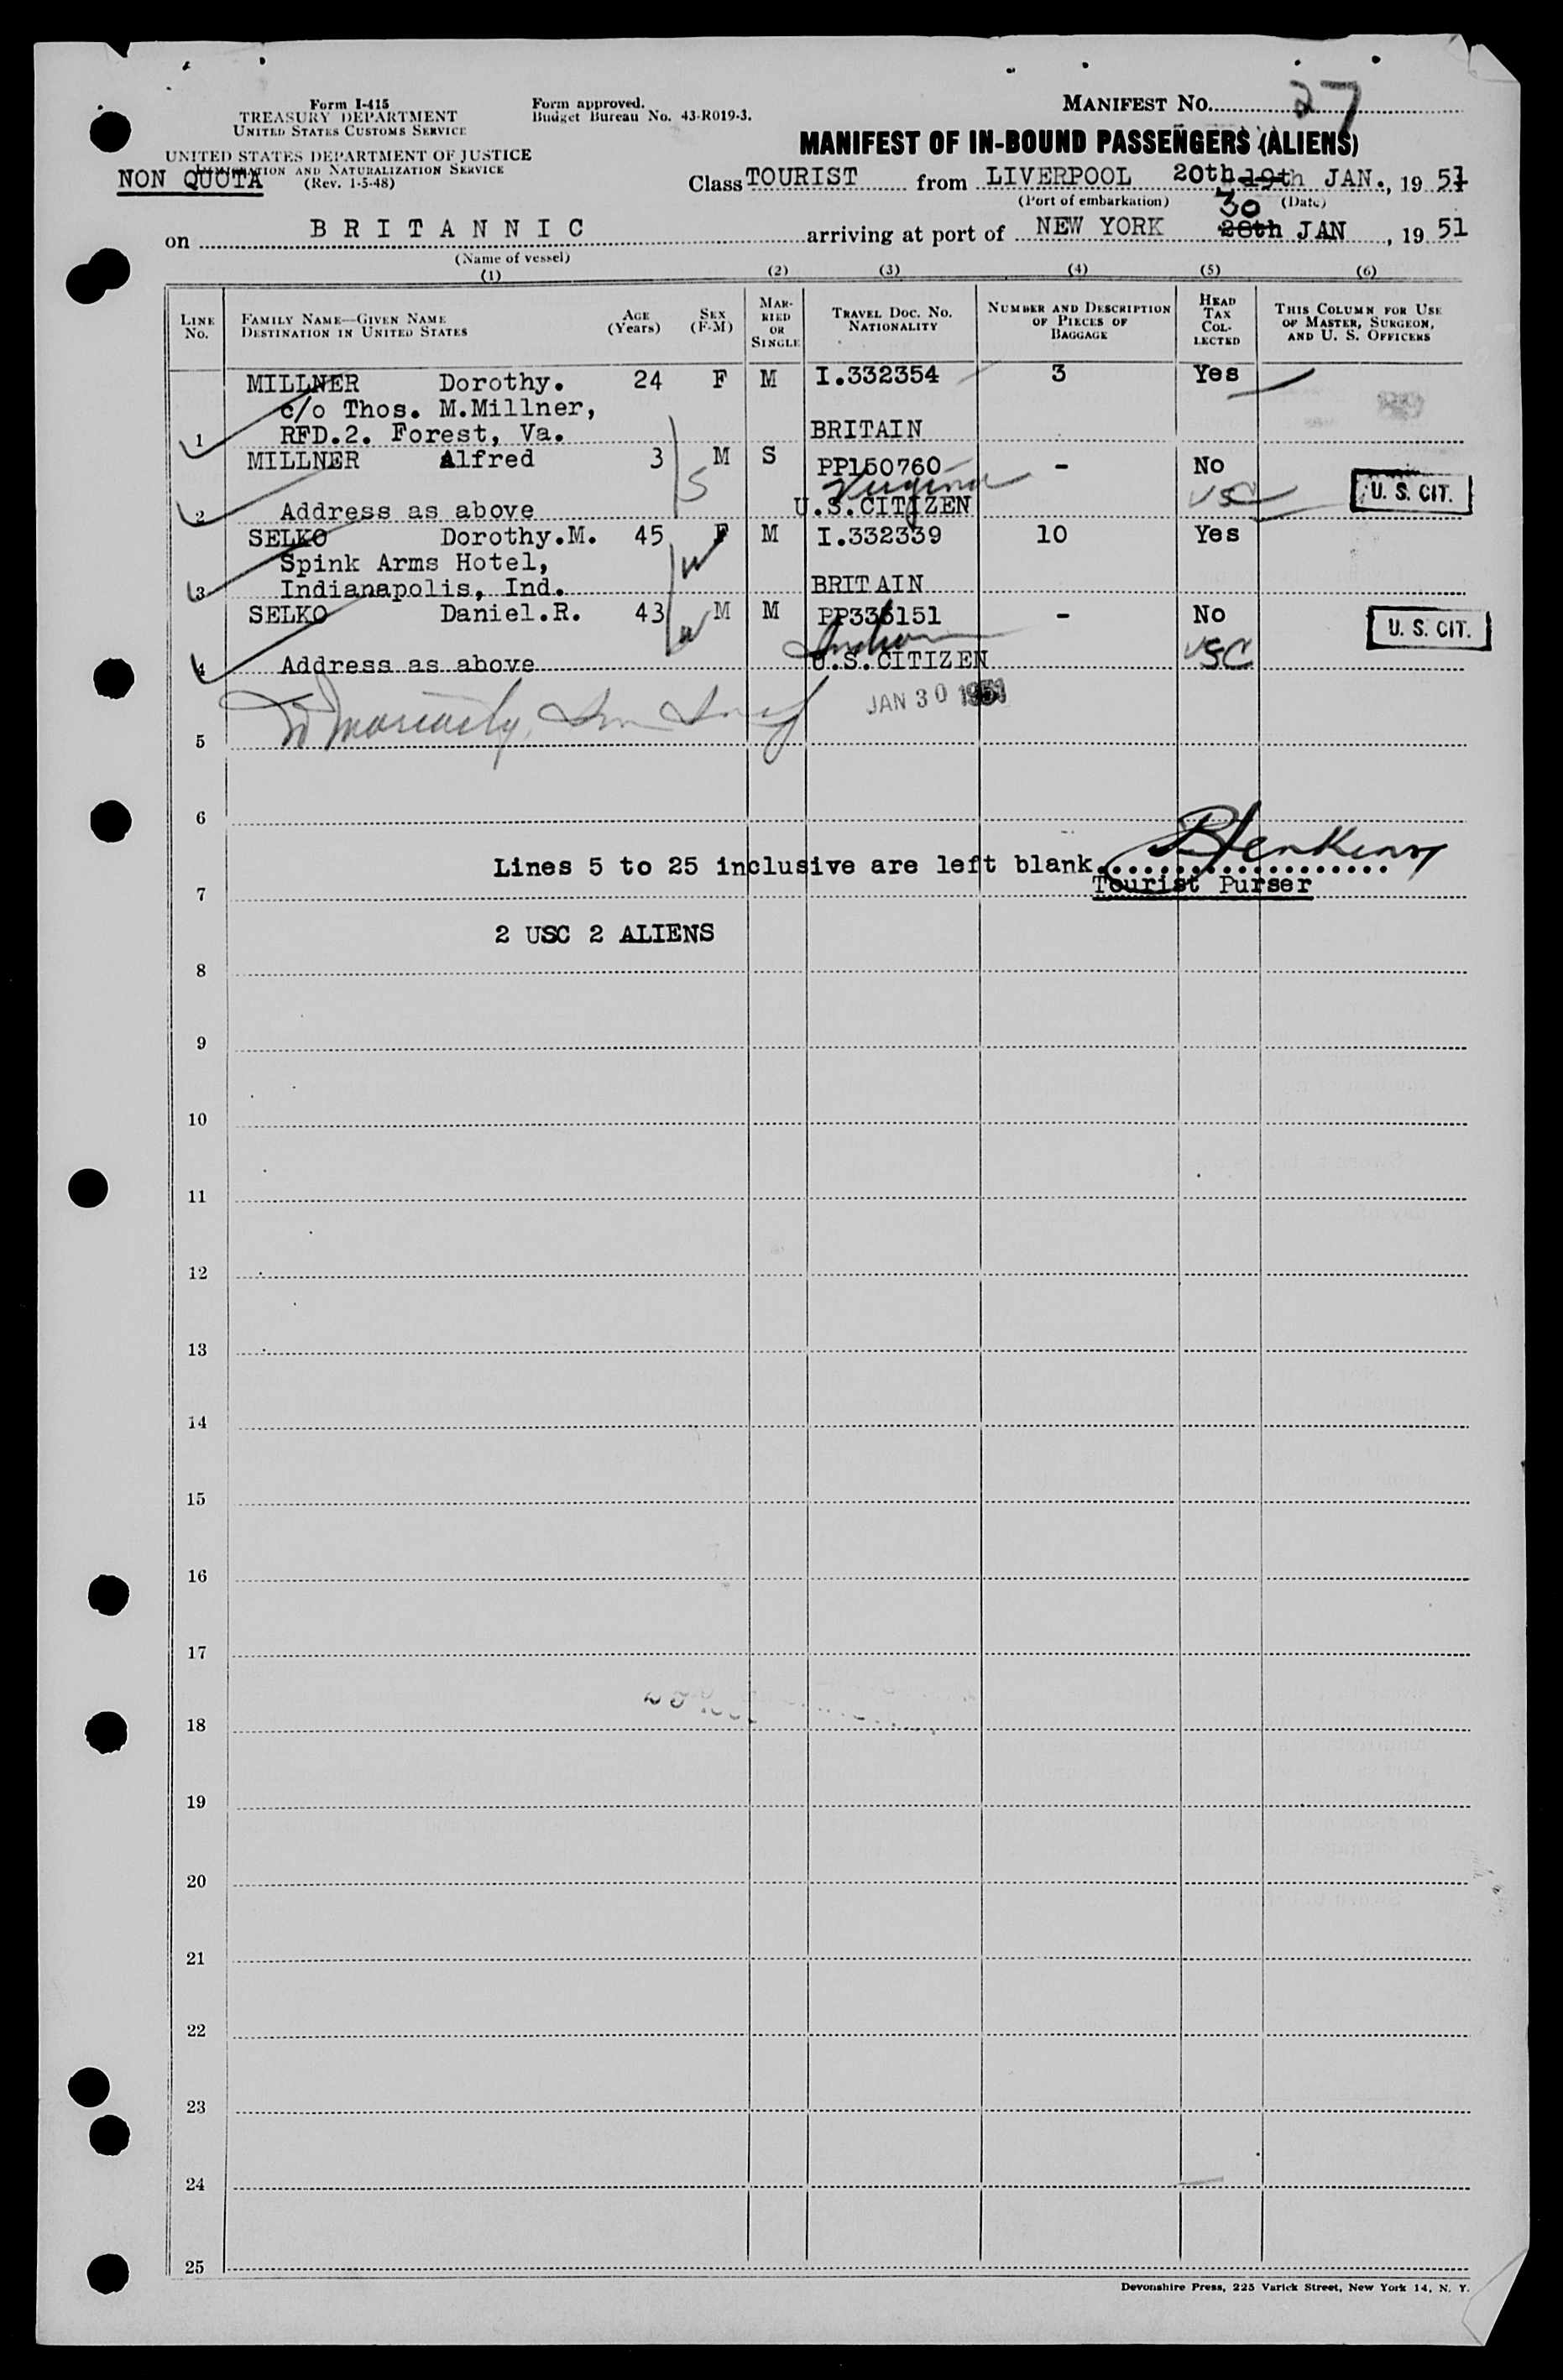 Form I-415
TREASURY DEPARTMENT
UNITED STATES CUSTOMS SERVICE
UNITED STATES DEPARTMENT OF JUSTICE
IMMIGRATION AND NATURALIZATION SERVICE
(Rev. 1-5-48)
NON QUOTA
Form approved.
Budget Bureau No. 43-R019-3.
MANIFEST No. 27
MANIFEST OF IN-BOUND PASSENGERS (ALIENS)
Class TOURIST from LIVERPOOL 20th 19th JAN., 19 51
(Port of embarkation) (Date)
on BRITANNIC arriving at port of NEW YORK 30 28th JAN, 19 51
(Name of vessel)
(1) (2) (3) (4) (5) (6)
LINE No. FAMILY NAME—GIVEN NAME DESTINATION IN UNITED STATES AGE (Years) SEX (F-M) MARRIED OR SINGLE TRAVEL DOC. NO. NATIONALITY NUMBER AND DESCRIPTION OF PIECES OF BAGGAGE HEAD TAX COLLECTED THIS COLUMN FOR USE OF MASTER, SURGEON, AND U. S. OFFICERS
MILLNER Dorothy. 24 F M I.332354 3 Yes
c/o Thos. M.Millner,
1 RFD.2. Forest, Va. BRITAIN
MILLNER Alfred 3 M S PP150760 - No
Virginia USC U. S. CIT.
2 Address as above U.S.CITIZEN
SELKO Dorothy.M. 45 F M I.332339 10 Yes
Spink Arms Hotel,
3 Indianapolis, Ind. BRITAIN
SELKO Daniel.R. 43 M M PP336151 - No U. S. CIT.
4 Address as above U.S.CITIZEN USC
JAN 30 1951
5
6
Lines 5 to 25 inclusive are left blank
7 Tourist Purser
2 USC 2 ALIENS
8
9
10
11
12
13
14
15
16
17
18
19
20
21
22
23
24
25
Devonshire Press, 225 Varick Street, New York 14, N. Y.